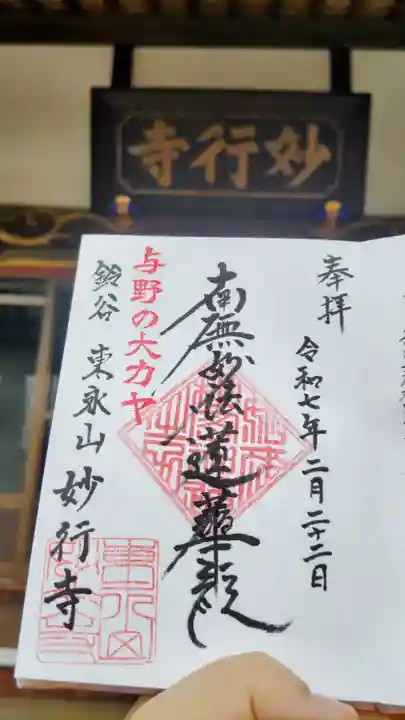 妙行寺
奉拝
令和七年二月二十二日
南無妙法蓮華経
与野の大カヤ
鈴谷 東永山 妙行寺